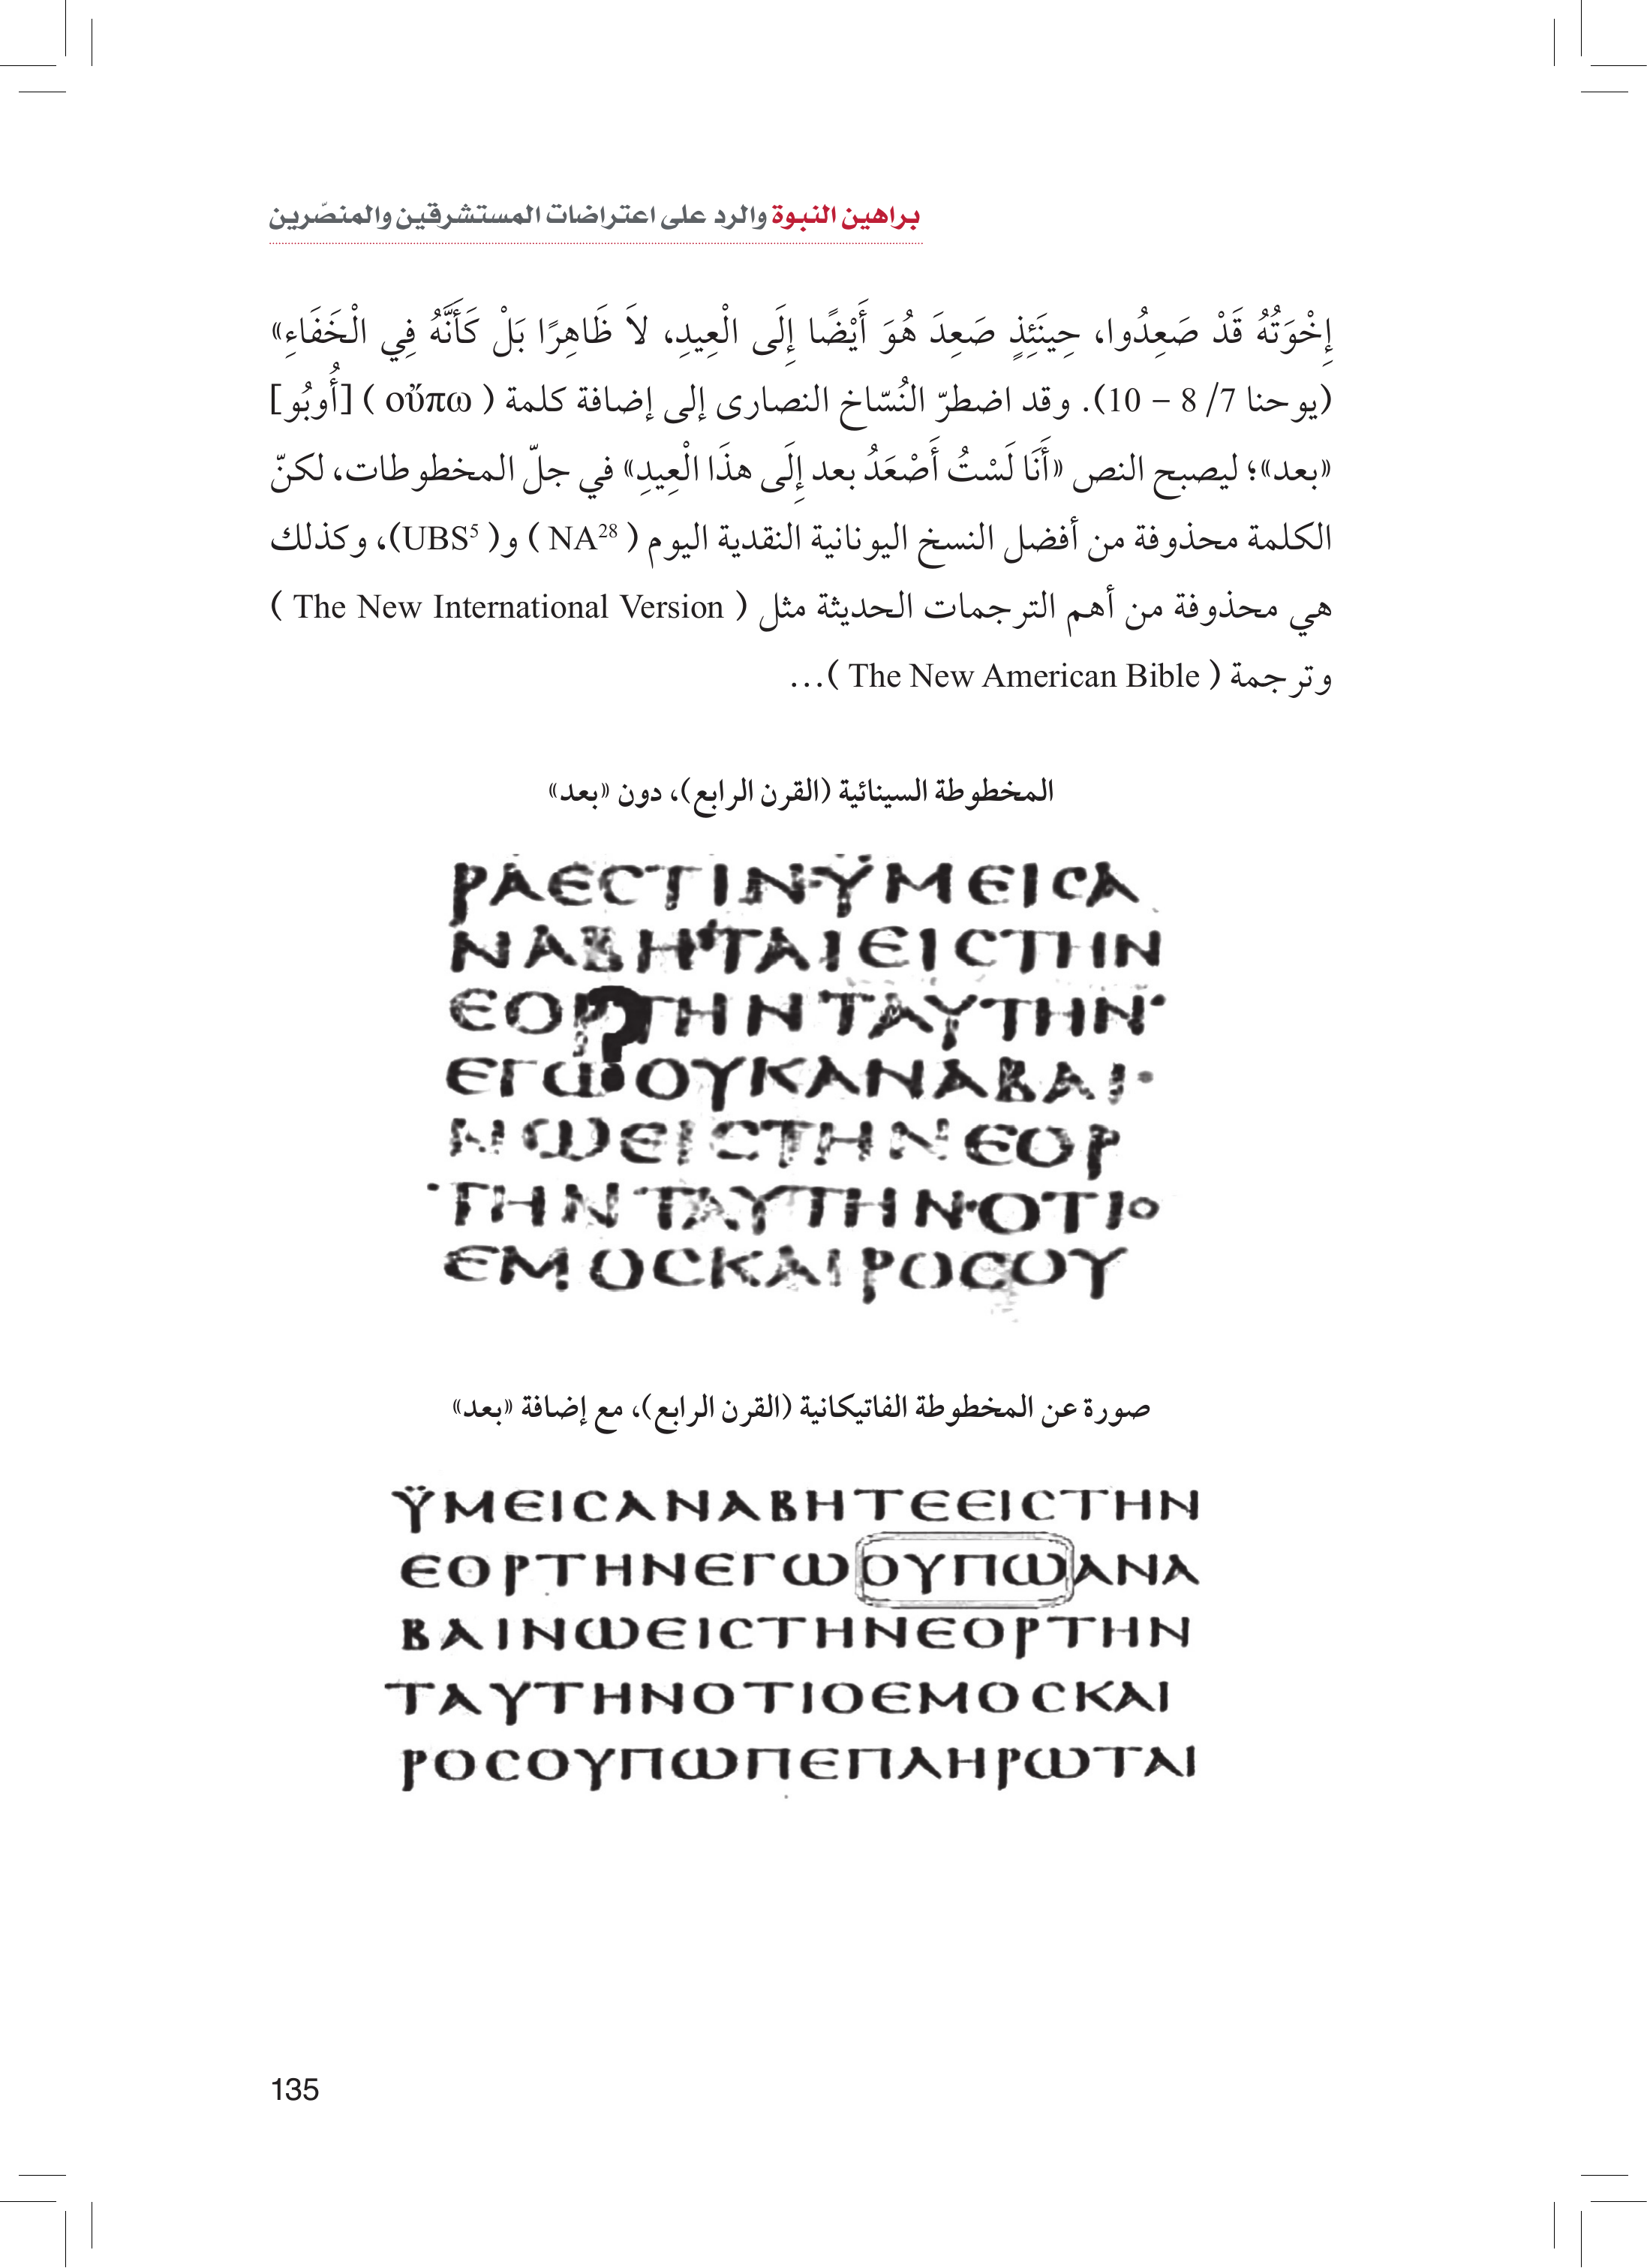 براهين النبوة والرد على اعتراضات المستشرقين والمنصّرين
إِخْوَتُهُ قَدْ صَعِدُوا، حِينَئِذٍ صَعِدَ هُوَ أَيْضًا إِلَى الْعِيدِ، لاَ ظَاهِرًا بَلْ كَأَنَّهُ فِي الْخَفَاءِ»
(يوحنا 7/ 8 – 10). وقد اضطرّ النُسّاخ النصارى إلى إضافة كلمة ( οὔπω ) [أُوبُو]
«بعد»؛ ليصبح النص «أَنَا لَسْتُ أَصْعَدُ بعد إِلَى هذَا الْعِيدِ» في جلّ المخطوطات، لكنّ
الكلمة محذوفة من أفضل النسخ اليونانية النقدية اليوم ( NA²⁸ ) و( UBS⁵)، وكذلك
هي محذوفة من أهم الترجمات الحديثة مثل ( The New International Version )
وترجمة ( The New American Bible )...
المخطوطة السينائية (القرن الرابع)، دون «بعد»
ΡΑΕϹΤΙΝ·ΫΜΕΙϹΑ
ΝΑΒΗΤΑΙΕΙϹΤΗΝ
ΕΟΡ?ΤΗΝΤΑΥΤΗΝ·
ΕΓΩΟΥΚΑΝΑΒΑΙ·
ΝΩΕΙϹΤΗΝΕΟΡ
ΤΗΝΤΑΥΤΗΝ·ΟΤΙΟ
ΕΜΟϹΚΑΙΡΟϹΟΥ
صورة عن المخطوطة الفاتيكانية (القرن الرابع)، مع إضافة «بعد»
ΫΜΕΙϹΑΝΑΒΗΤΕΕΙϹΤΗΝ
ΕΟΡΤΗΝΕΓΩΟΥΠΩΑΝΑ
ΒΑΙΝΩΕΙϹΤΗΝΕΟΡΤΗΝ
ΤΑΥΤΗΝΟΤΙΟΕΜΟϹΚΑΙ
ΡΟϹΟΥΠΩΠΕΠΛΗΡΩΤΑΙ
135